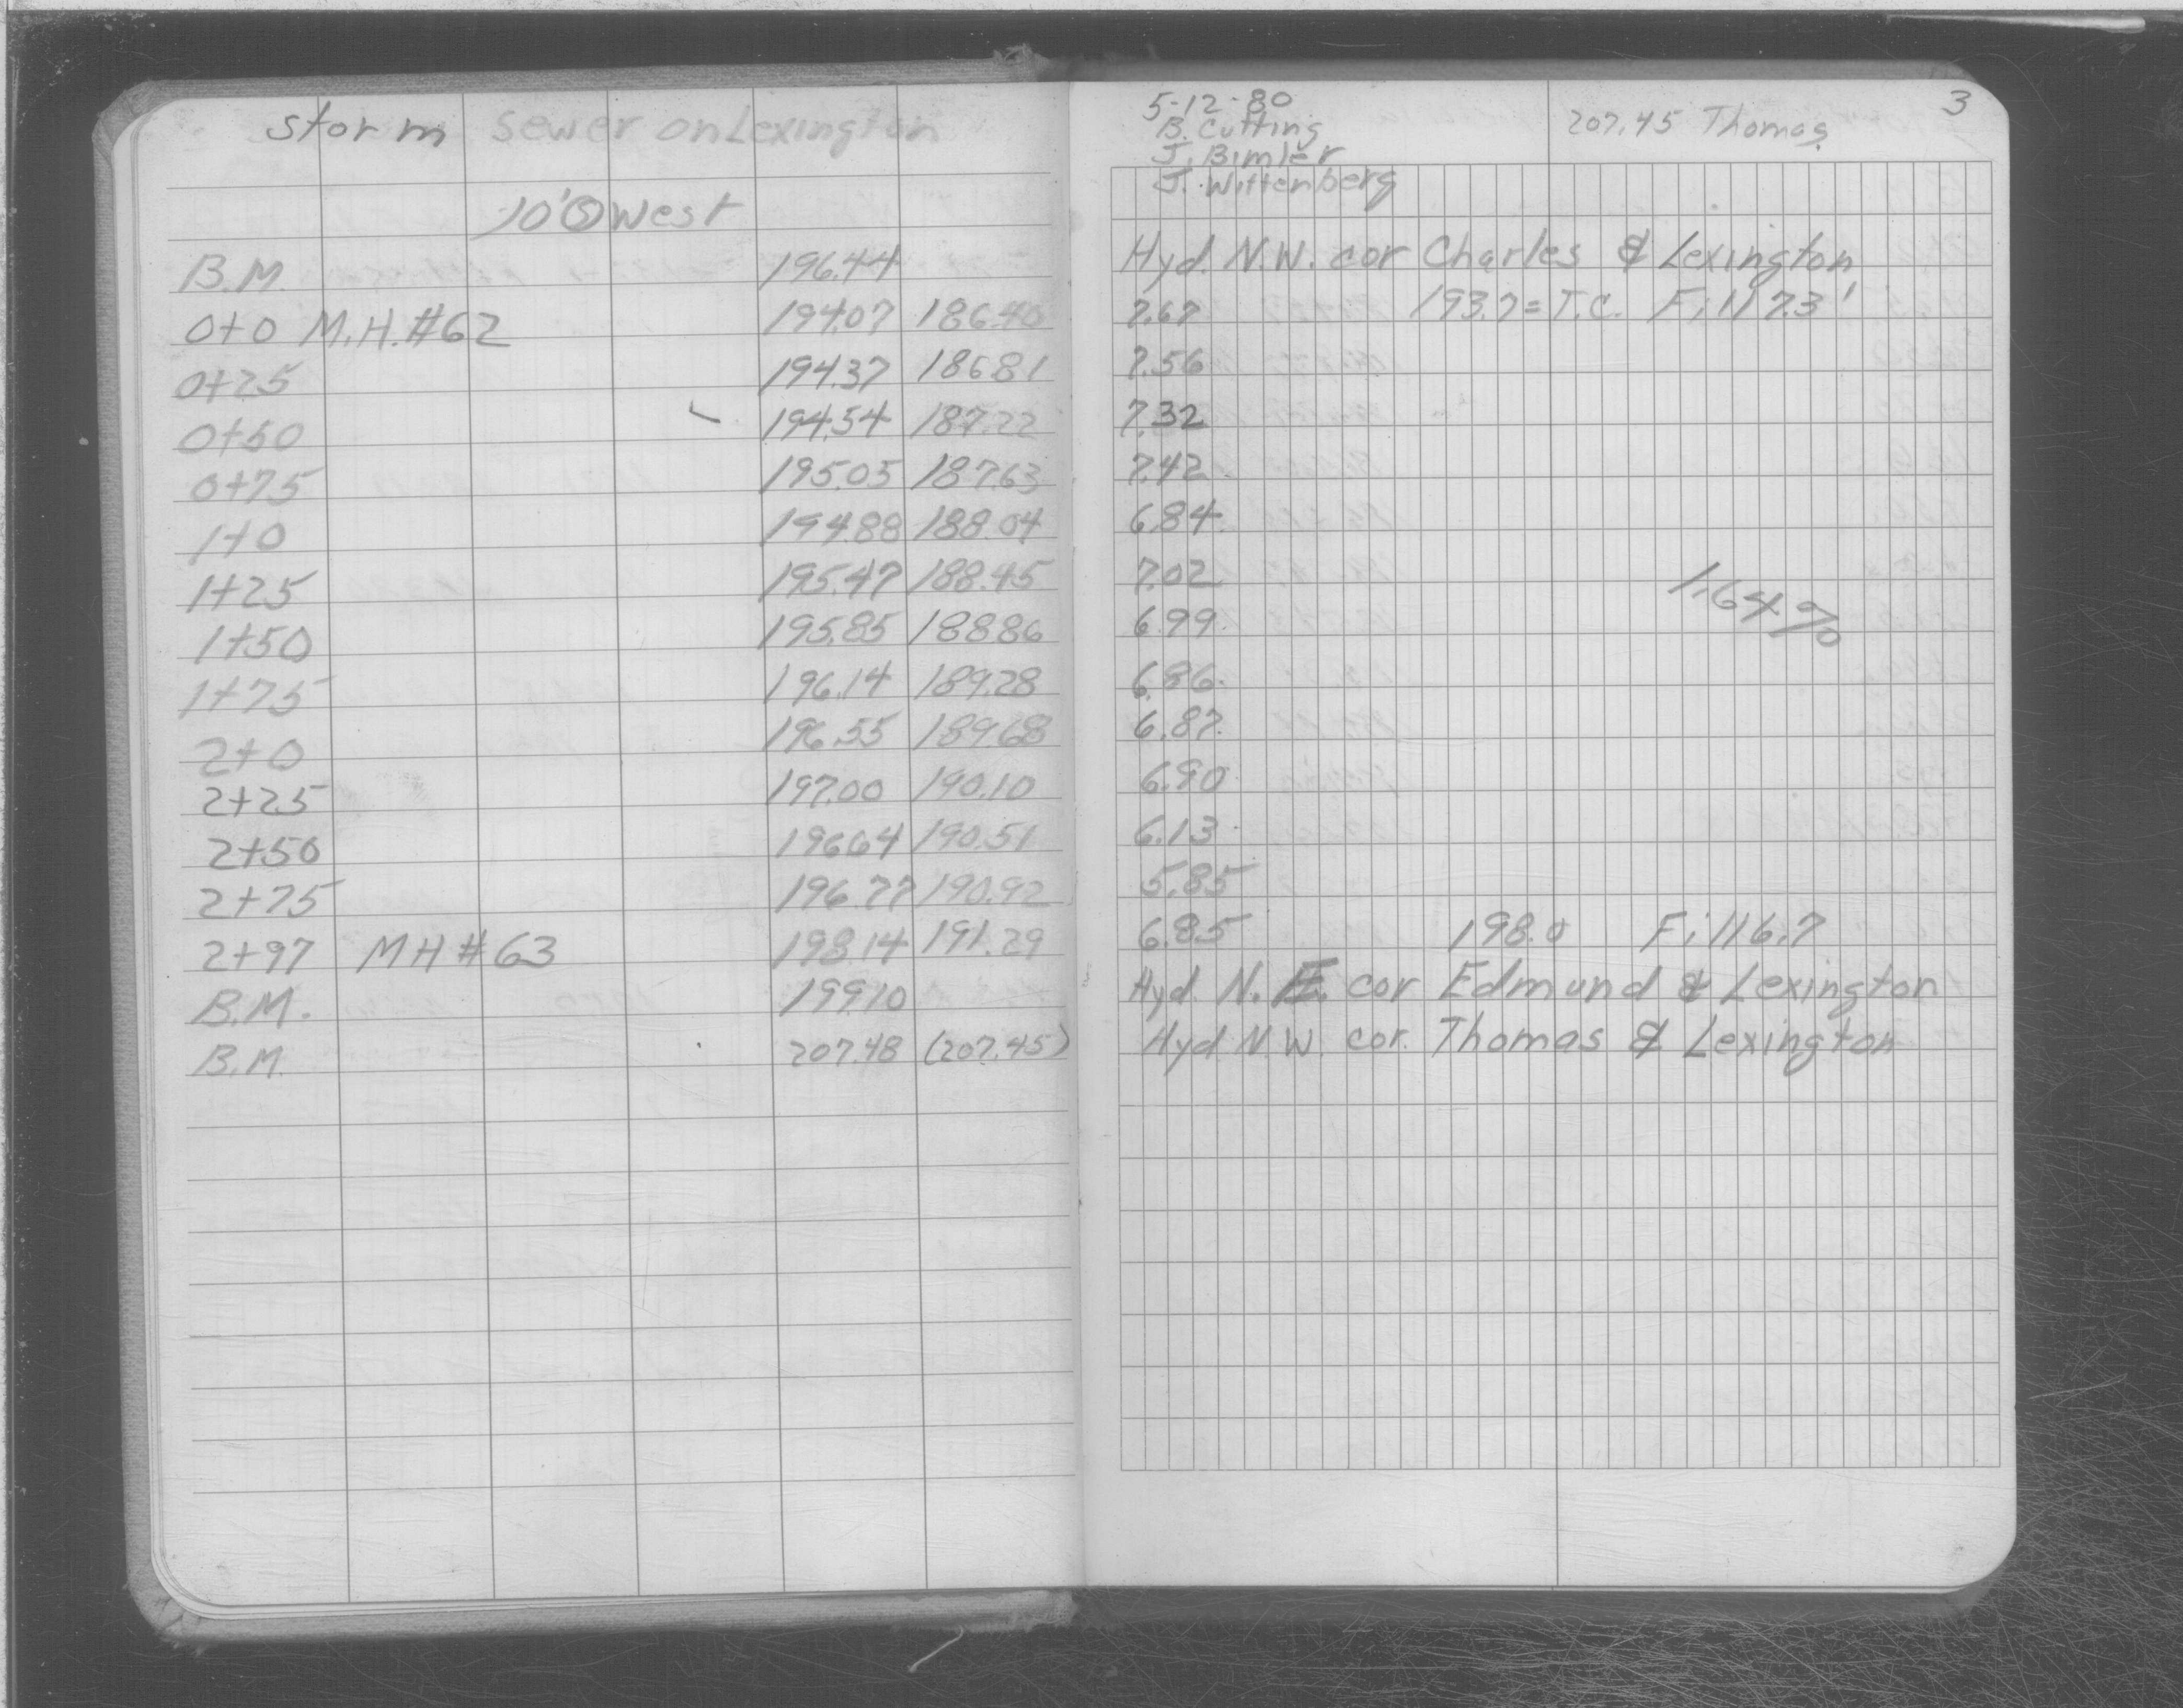 Storm Sewer on Lexington
10' Ⓢ West
B.M. 196.44
0+0 M.H. #62 194.07 186.40
0+25 194.37 186.81
0+50 194.54 187.22
0+75 195.05 187.63
1+0 194.88 188.04
1+25 195.47 188.45
1+50 195.85 188.86
1+75 196.14 189.28
2+0 196.55 189.68
2+25 197.00 190.10
2+50 196.64 190.51
2+75 196.77 190.92
2+97 MH #63 198.14 191.29
B.M. 199.10
B.M. 207.48 (207.45)
3
5-12-80
B. Cutting
J. Bimler
J. Wittenberg
207.45 Thomas
Hyd. N.W. cor Charles & Lexington
7.67 193.7 = T.C. Fill 7.3'
7.56
7.32
7.42
6.84
7.02
6.99
1.64%
6.86
6.87
6.90
6.13
5.85
6.85 198.0 Fill 6.7
Hyd. N.E. cor Edmund & Lexington
Hyd N.W. cor. Thomas & Lexington